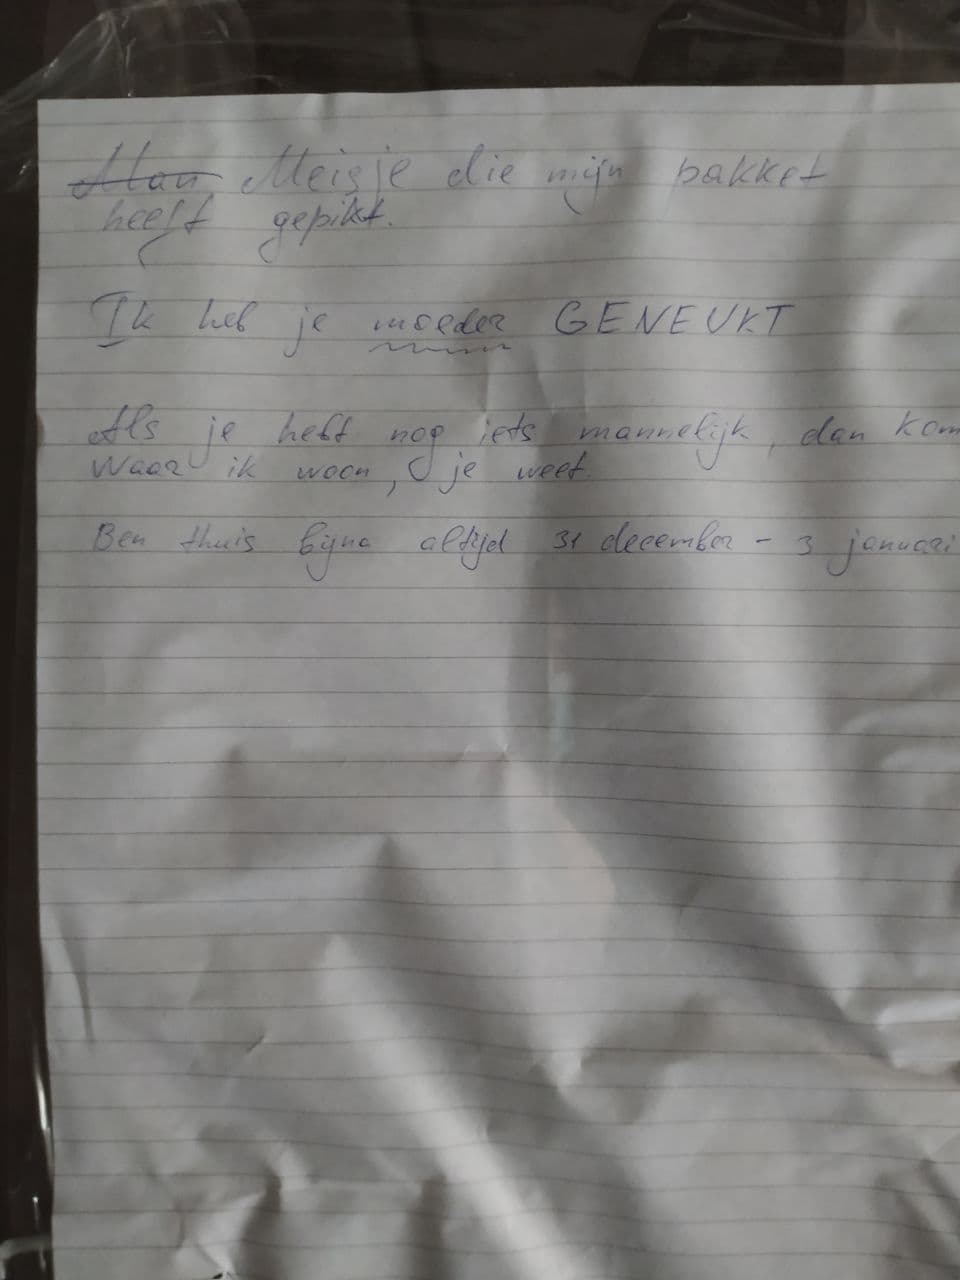 Man Meisje die mijn pakket
heeft gepikt.
Ik heb je moeder GENEUKT
Als je heft nog iets mannelijk, dan kom
waar ik woon, je weet.
Ben thuis bijna altijd 31 december - 3 januari